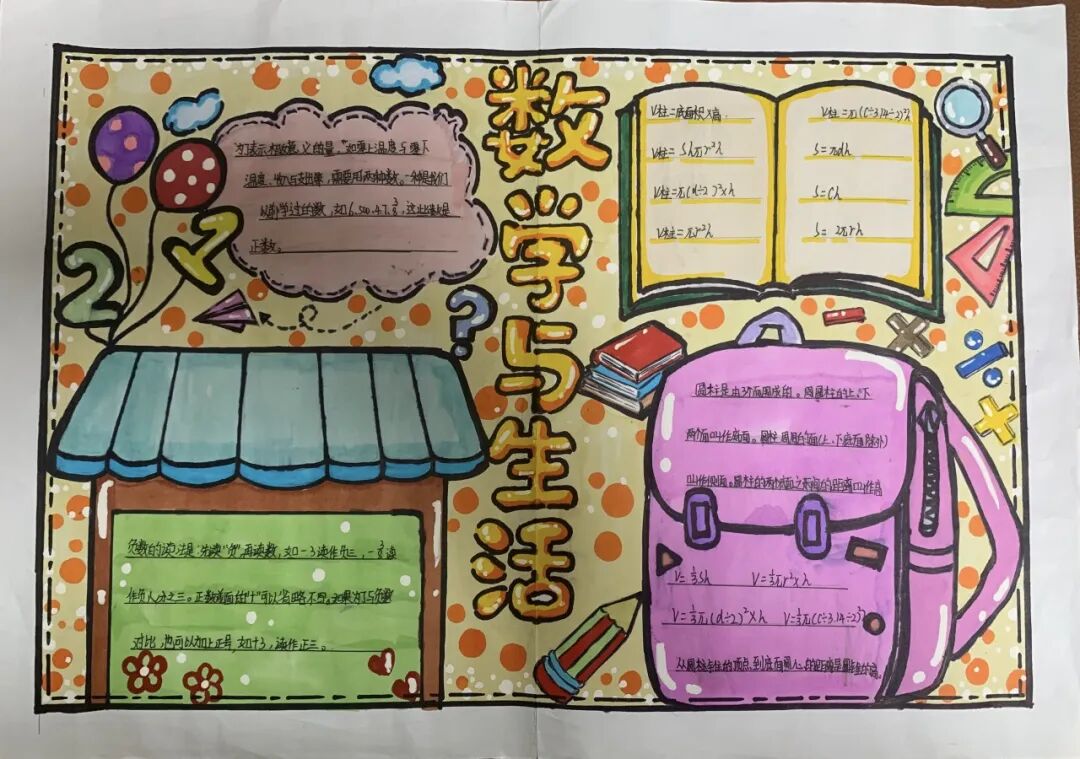 数学与生活
为了表示相反意义的量。如零上温度与零下
温度、收入与支出等,需要用两种数。一种是我们
以前学过的数,如6.500.4.7.3/8,这些数是
正数。
2
1
?
V柱=底面积×高
V柱=Sh
V柱=π(d÷2)²×h
V柱=πr²h
V柱=π(C÷3.14÷2)²
S=πdh
S=Ch
S=2πrh
圆柱是由3个面围成的。圆柱的上、下
两个面叫作底面。圆柱周围的面(上、下底面除外)
叫作侧面。圆柱的两个底面之间的距离叫作高
V=1/3Sh V=1/3πr²×h
V=1/3π(d÷2)²×h V=1/3π(C÷3.14÷2)²
的顶点到底面圆心的距离是圆锥的高。
负数的读法是先读“负”再读数,如-3读作负三,-3/8读
作负八分之三。正数前面的“+”可以省略不写。如果为了与负数
对比,也可以加上正号,如+3,读作正三。